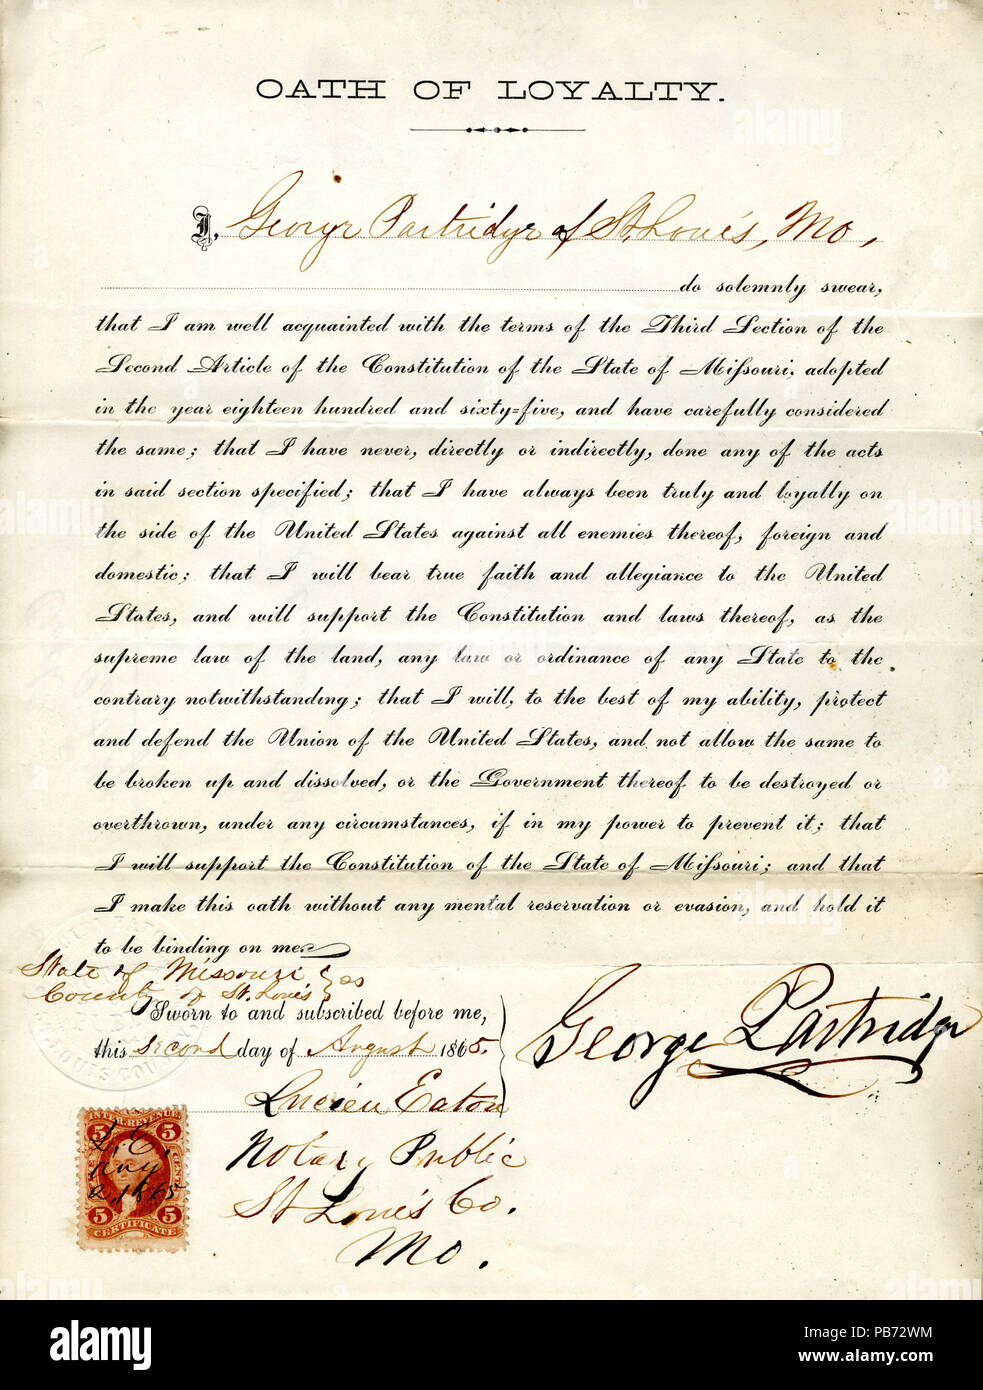 OATH OF LOYALTY.
I, George Partridge of St. Louis, Mo,
do solemnly swear,
that I am well acquainted with the terms of the Third Section of the
Second Article of the Constitution of the State of Missouri, adopted
in the year eighteen hundred and sixty=five, and have carefully considered
the same; that I have never, directly or indirectly, done any of the acts
in said section specified; that I have always been truly and loyally on
the side of the United States against all enemies thereof, foreign and
domestic; that I will bear true faith and allegiance to the United
States, and will support the Constitution and laws thereof, as the
supreme law of the land, any law or ordinance of any State to the
contrary notwithstanding; that I will, to the best of my ability, protect
and defend the Union of the United States, and not allow the same to
be broken up and dissolved, or the Government thereof to be destroyed or
overthrown, under any circumstances, if in my power to prevent it; that
I will support the Constitution of the State of Missouri; and that
I make this oath without any mental reservation or evasion, and hold it
to be binding on me.
State of Missouri } ss
County of St. Louis
Sworn to and subscribed before me,
this Second day of August 1865.
George Partridge
Lucien Eaton
Notary Public
St Louis Co.
Mo.
INTER. REVENUE
5 5
L. E.
Aug
2, 1865
5 5
CERTIFICATE
alamy
Image ID: PB72WM
www.alamy.com